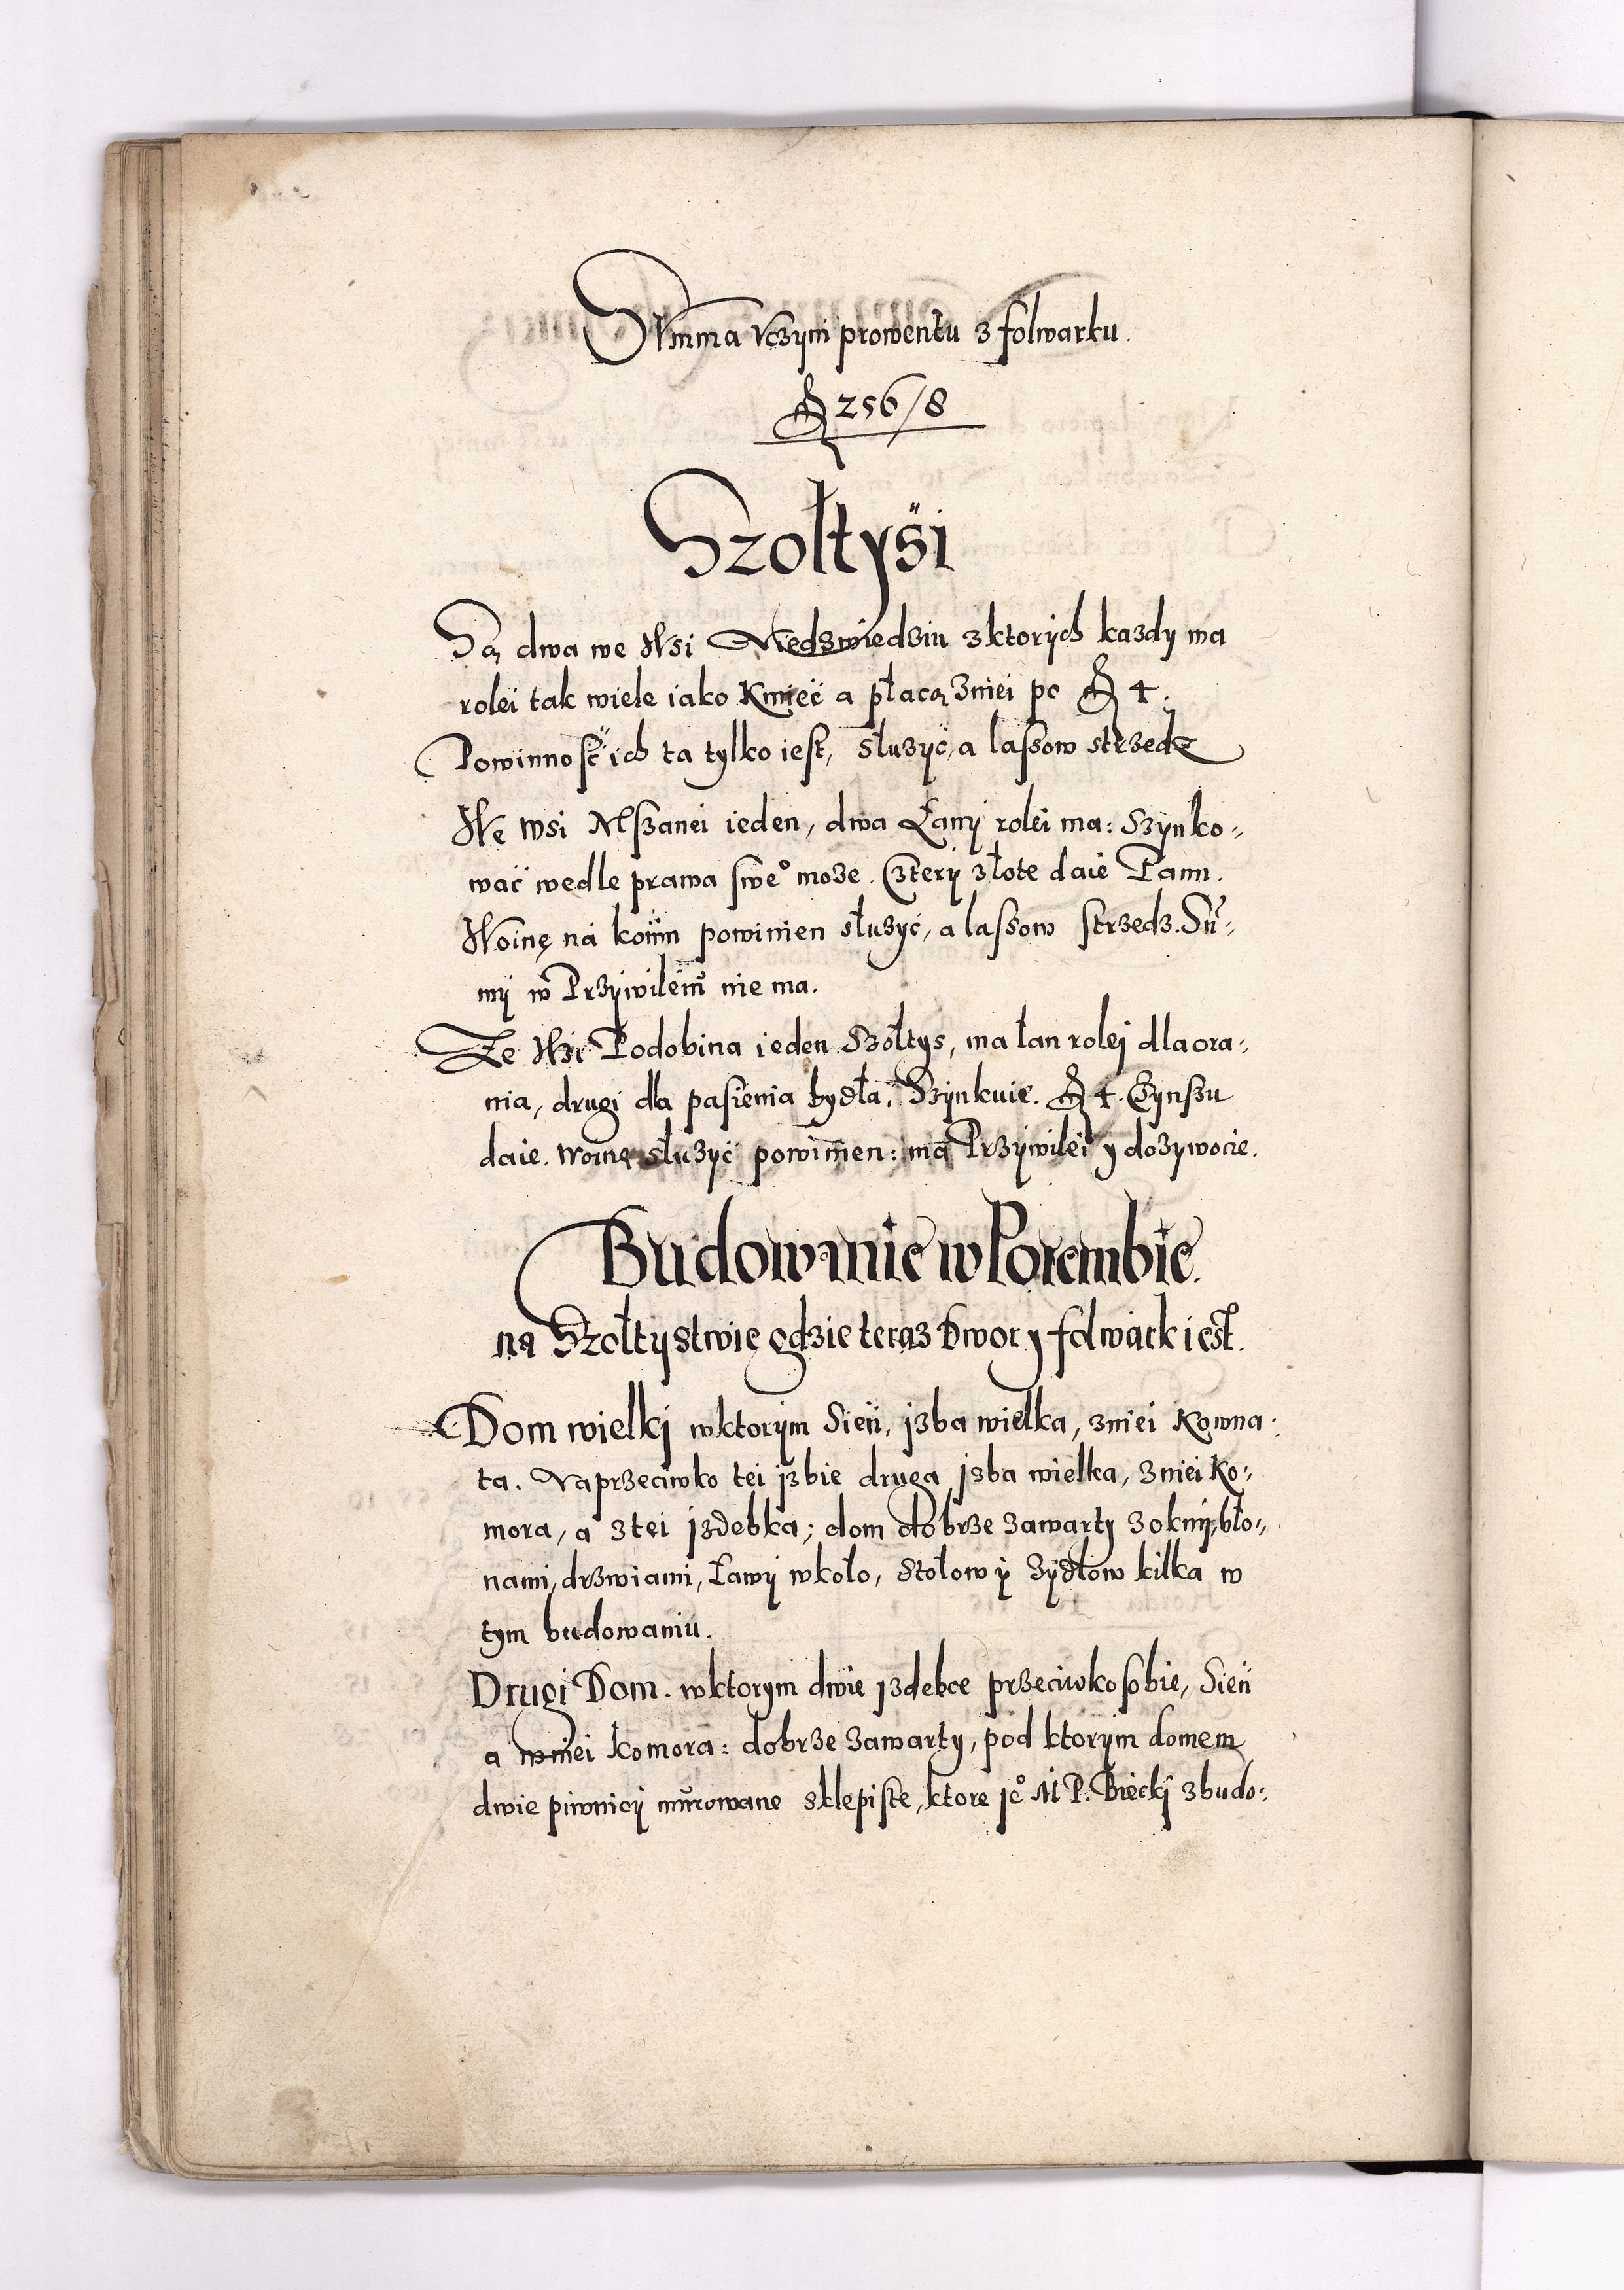 Summa vczyni prowentu z folwarku.
fl 256/8
Szołtysi
Są dwa we Wsi Niedzwiedziu z ktorych kazdy ma
rolei tak wiele iako Kmieć a płacą z niei po fl 4.
Powinność ich ta tylko iest, słuzyć, a lassow strzedz
We wsi Mszanei ieden, dwa Łany rolei ma: Szynko-
wać wedle prawa sweo moze. Cztery złote daie Pann.
Woinę ná koniu powinien słuzyć, a lassow strzedz. Su-
my w Przywileiu nie ma.
Ze Wsi Podobina ieden Szołtys, ma łan rolej dla ora-
nia, drugi dla pasienia bydła. Szynkuie. fl 4. Czynszu
daie. woinę słuzyć powinien: ma Przywilei y dozywocie.
Budownie w Porembie.
na Szołtystwie gdzie teraz Dwor y folwark iest.
Dom wielkj w ktorym Sień, jzba wielka, z niei Kowna-
ta. Naprzeciwko tei jzbie druga jzba wielka, z niei Ko-
mora, a z tei jzdebka; dom dobrze zawarty z okny, bło-
nami, drzwiami, Ławy w koło, stołow y zydłow kilka w
tym budowaniu.
Drugi Dom. w ktorym dwie jzdebce przeciwko sobie, Sień
a w niei komora: dobrze zawarty, pod ktorym domem
dwie piwnicy murowane sklepiste, ktore jeo M P. Biecki zbudo-